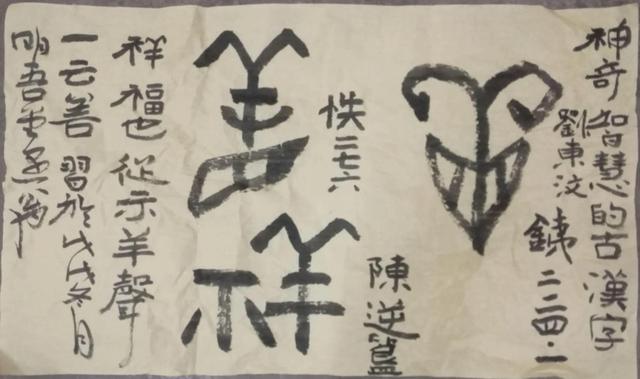 神奇智慧的古漢字
劉東汶
銕二二四·一
佚二七六
陳逆簠
祥
祥福也從示羊聲
一云善習於戊戌冬月
明吾